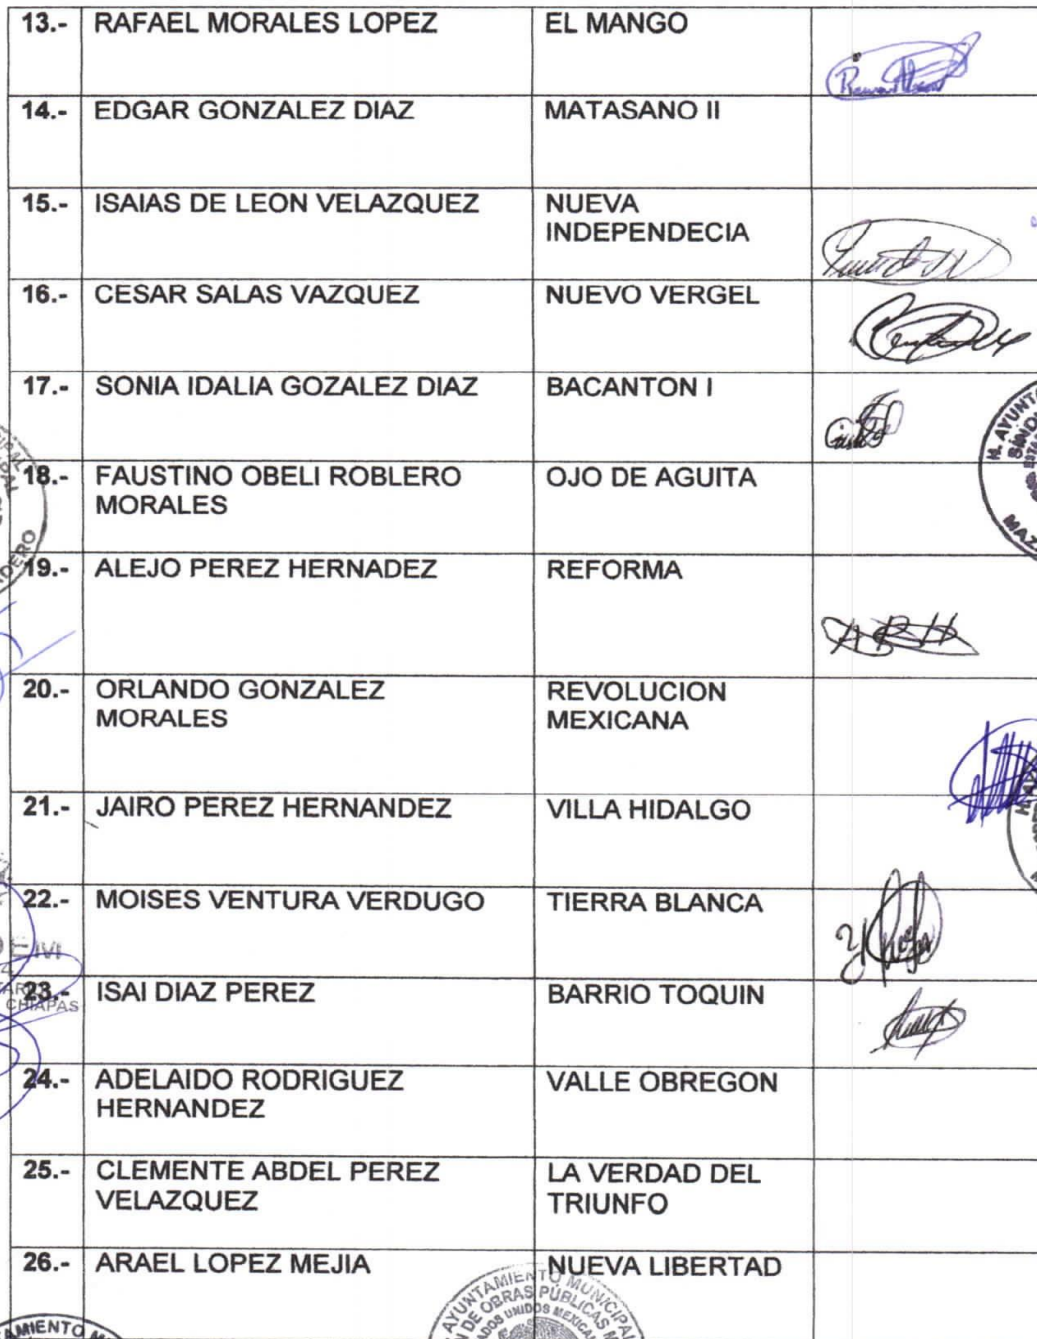 13.- RAFAEL MORALES LOPEZ EL MANGO
14.- EDGAR GONZALEZ DIAZ MATASANO II
15.- ISAIAS DE LEON VELAZQUEZ NUEVA
INDEPENDECIA
16.- CESAR SALAS VAZQUEZ NUEVO VERGEL
17.- SONIA IDALIA GOZALEZ DIAZ BACANTON I
18.- FAUSTINO OBELI ROBLERO OJO DE AGUITA
MORALES
19.- ALEJO PEREZ HERNADEZ REFORMA
20.- ORLANDO GONZALEZ REVOLUCION
MORALES MEXICANA
21.- JAIRO PEREZ HERNANDEZ VILLA HIDALGO
22.- MOISES VENTURA VERDUGO TIERRA BLANCA
23.- ISAI DIAZ PEREZ BARRIO TOQUIN
CHIAPAS
24.- ADELAIDO RODRIGUEZ VALLE OBREGON
HERNANDEZ
25.- CLEMENTE ABDEL PEREZ LA VERDAD DEL
VELAZQUEZ TRIUNFO
26.- ARAEL LOPEZ MEJIA NUEVA LIBERTAD
AYUNTAMIENTO MUNICIPAL
DE OBRAS PÚBLICAS
UNIDOS